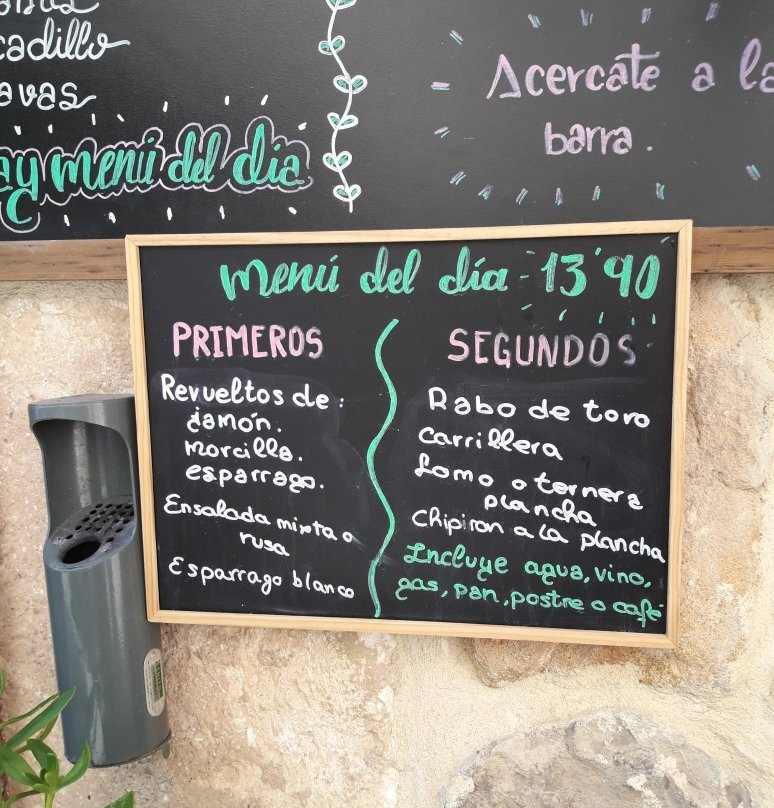 cadillo
avas
ay menú del día
Acercate a la
barra.
menú del día - 13'90
PRIMEROS
Revueltos de:
jamón.
morcilla.
esparrago.
Ensalada mixta o
rusa
Esparrago blanco
SEGUNDOS
Rabo de toro
Carrillera
Lomo o ternera
plancha
Chipiron a la plancha
Incluye agua, vino,
gas, pan, postre o café